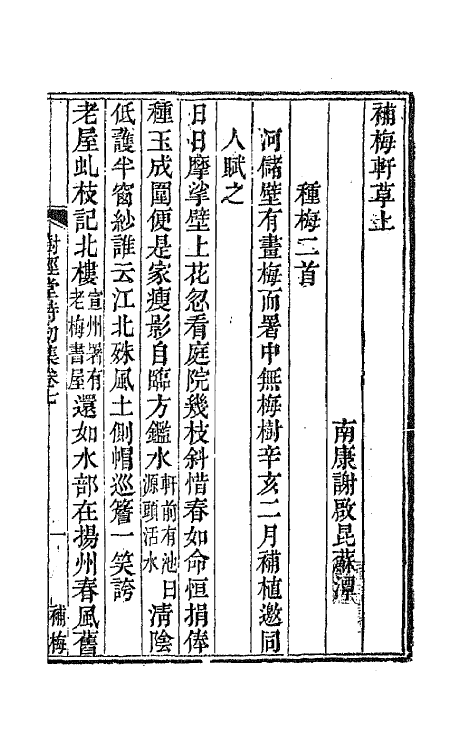 補梅軒草上
南康謝啟昆蘇潭
種梅二首
河儲壁有畫梅而署中無梅樹辛亥二月補植邀同
人賦之
日日摩挲壁上花忽看庭院幾枝斜惜春如命恒捐俸
種玉成圍便是家瘦影自臨方鑑水軒前有池曰源頭活水清陰
低護半窗紗誰云江北殊風土側帽巡簷一笑誇
老屋虬枝記北樓宣州署有老梅書屋還如水部在揚州春風舊
樹經堂詩初集卷七 一 補梅